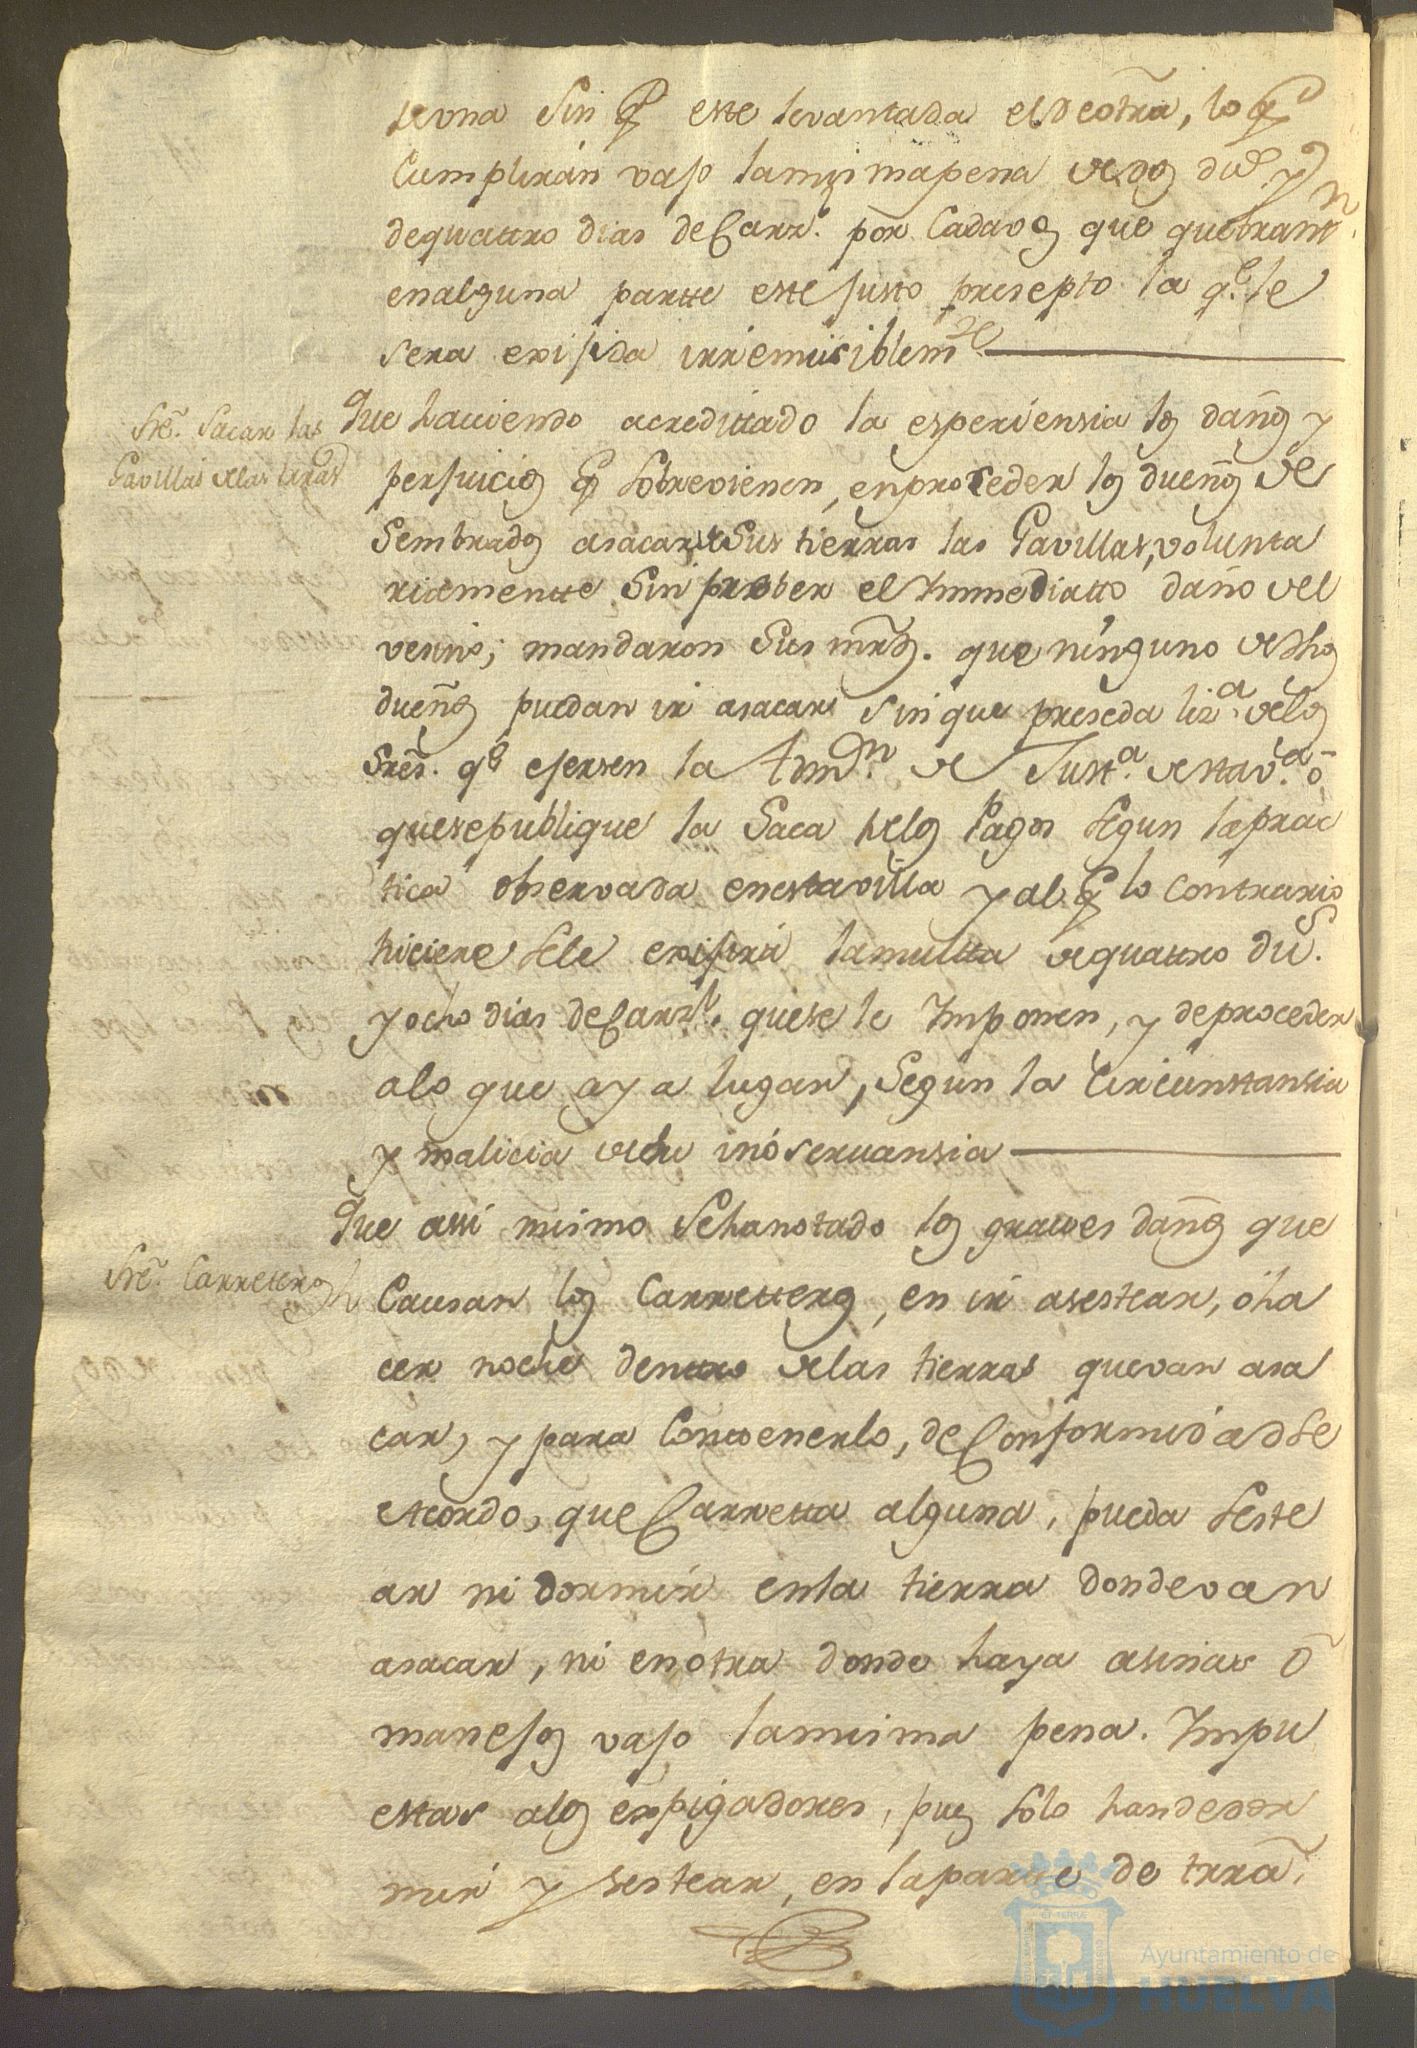 de una Sin q^e este levantada el de otra, lo q^e
Cumplirán vajo la misma pena de dos du^s y
de quattro dias de Carz^l por Cada vs que quebrant^n
en alguna partte este justo presepto la q^e le
sera exijida irremisiblem^te
Sre. Sacar las
Gavillas de las tierras
Que haviendo acredittado la esperiensia los daños y
perjuicios q^e Sobrevienen, en proceder los dueños de
Sembrados a sacar de Sus tierras las Gavillas, volunta
riamentte Sin preber el Immediatto daño del
vesino; mandaron Sus mrds. que ninguno de dhos
dueños puedan ir a sacar sin que preseda liz^a de los
Sres. q^e ejersen la Admn. de Justt^a de esta v^a o
que se publique la Saca de los Pagos Segun la prac
tica observada en esta villa y al q^e lo Contrario
hiciere Se le exijirá la multta de quattro du^s.
y ocho dias de Carz^l. que se le Imponen, y de proceder
a lo que aya lugar, Segun la Circunsttansia
y malicia de su inóservansia
Sre. Carreteros
Que assi mismo Se ha notado los graves daños que
Causan los Carretteros, en ir a sestear, ó ha
cer noche denttro de las tierras que van a sa
car, y para Contenerlo, de Conformidad Se
Acordo, que Carretta alguna, pueda Seste
ar ni dormir en la tierra donde van
a sacar, ni en otra donde haya asinas ó
manejos vajo la misma pena. Impu
estas a los espigadores, pues Solo han de dor
mir y sestear, en la parte de trra,
Ayuntamiento de
HUELVA